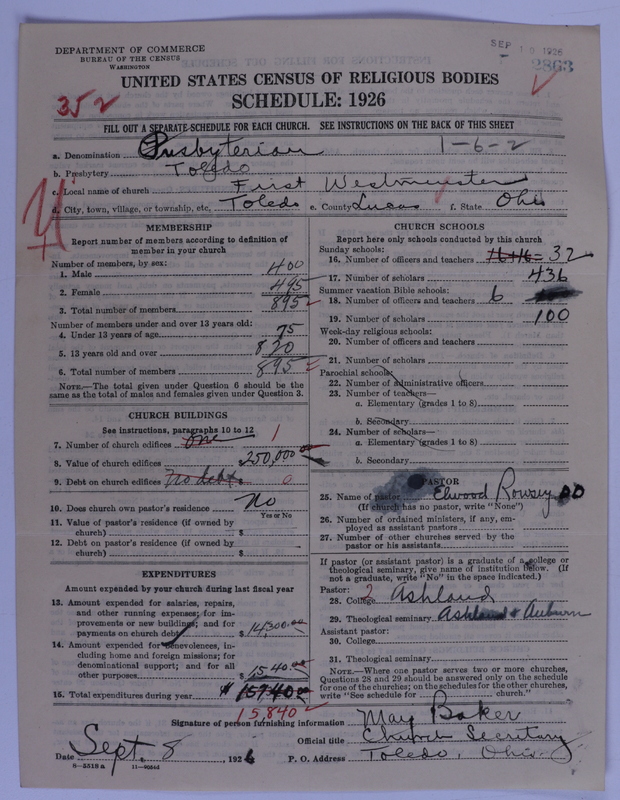 DEPARTMENT OF COMMERCE
BUREAU OF THE CENSUS
WASHINGTON
SEP 10 1926
2863
UNITED STATES CENSUS OF RELIGIOUS BODIES
SCHEDULE: 1926
352
FILL OUT A SEPARATE SCHEDULE FOR EACH CHURCH. SEE INSTRUCTIONS ON THE BACK OF THIS SHEET
a. Denomination Presbyterian 1-6-2
b. Presbytery Toledo
c. Local name of church First Westminster
d. City, town, village, or township, etc. Toledo e. County Lucas f. State Ohio
MEMBERSHIP
Report number of members according to definition of
member in your church
Number of members, by sex:
1. Male 400
2. Female 495
3. Total number of members 895
Number of members under and over 13 years old:
4. Under 13 years of age 75
5. 13 years old and over 820
6. Total number of members 895
NOTE.—The total given under Question 6 should be the
same as the total of males and females given under Question 3.
CHURCH BUILDINGS
See instructions, paragraphs 10 to 12
7. Number of church edifices one 1
8. Value of church edifices $ 250,000.00
9. Debt on church edifices No debt $ 0
10. Does church own pastor's residence No
Yes or No
11. Value of pastor's residence (if owned by
church) $
12. Debt on pastor's residence (if owned by
church) $
EXPENDITURES
Amount expended by your church during last fiscal year
13. Amount expended for salaries, repairs,
and other running expenses; for im-
provements or new buildings; and for
payments on church debt $ 14,300.00
14. Amount expended for benevolences, in-
cluding home and foreign missions; for
denominational support; and for all
other purposes $ 1540.00
15. Total expenditures during year $ 15740.00
15,840
CHURCH SCHOOLS
Report here only schools conducted by this church
Sunday schools:
16. Number of officers and teachers 16+16= 32
17. Number of scholars 436
Summer vacation Bible schools:
18. Number of officers and teachers 6
19. Number of scholars 100
Week-day religious schools:
20. Number of officers and teachers
21. Number of scholars
Parochial schools:
22. Number of administrative officers
23. Number of teachers—
a. Elementary (grades 1 to 8)
b. Secondary
24. Number of scholars—
a. Elementary (grades 1 to 8)
b. Secondary
PASTOR
25. Name of pastor Elwood Rowsey DD
(If church has no pastor, write "None")
26. Number of ordained ministers, if any, em-
ployed as assistant pastors
27. Number of other churches served by the
pastor or his assistants
If pastor (or assistant pastor) is a graduate of a college or
theological seminary, give name of institution below. (If
not a graduate, write "No" in the space indicated.)
Pastor:
28. College 2 Ashland
29. Theological seminary Ashland & Auburn
Assistant pastor:
30. College
31. Theological seminary
NOTE.—Where one pastor serves two or more churches,
Questions 28 and 29 should be answered only on the schedule
for one of the churches; on the schedules for the other churches,
write "See schedule for church."
Signature of person furnishing information May Baker
Official title Church Secretary
Date Sept. 8, 1926 P. O. Address Toledo, Ohio.
8—5518 a 11—90565